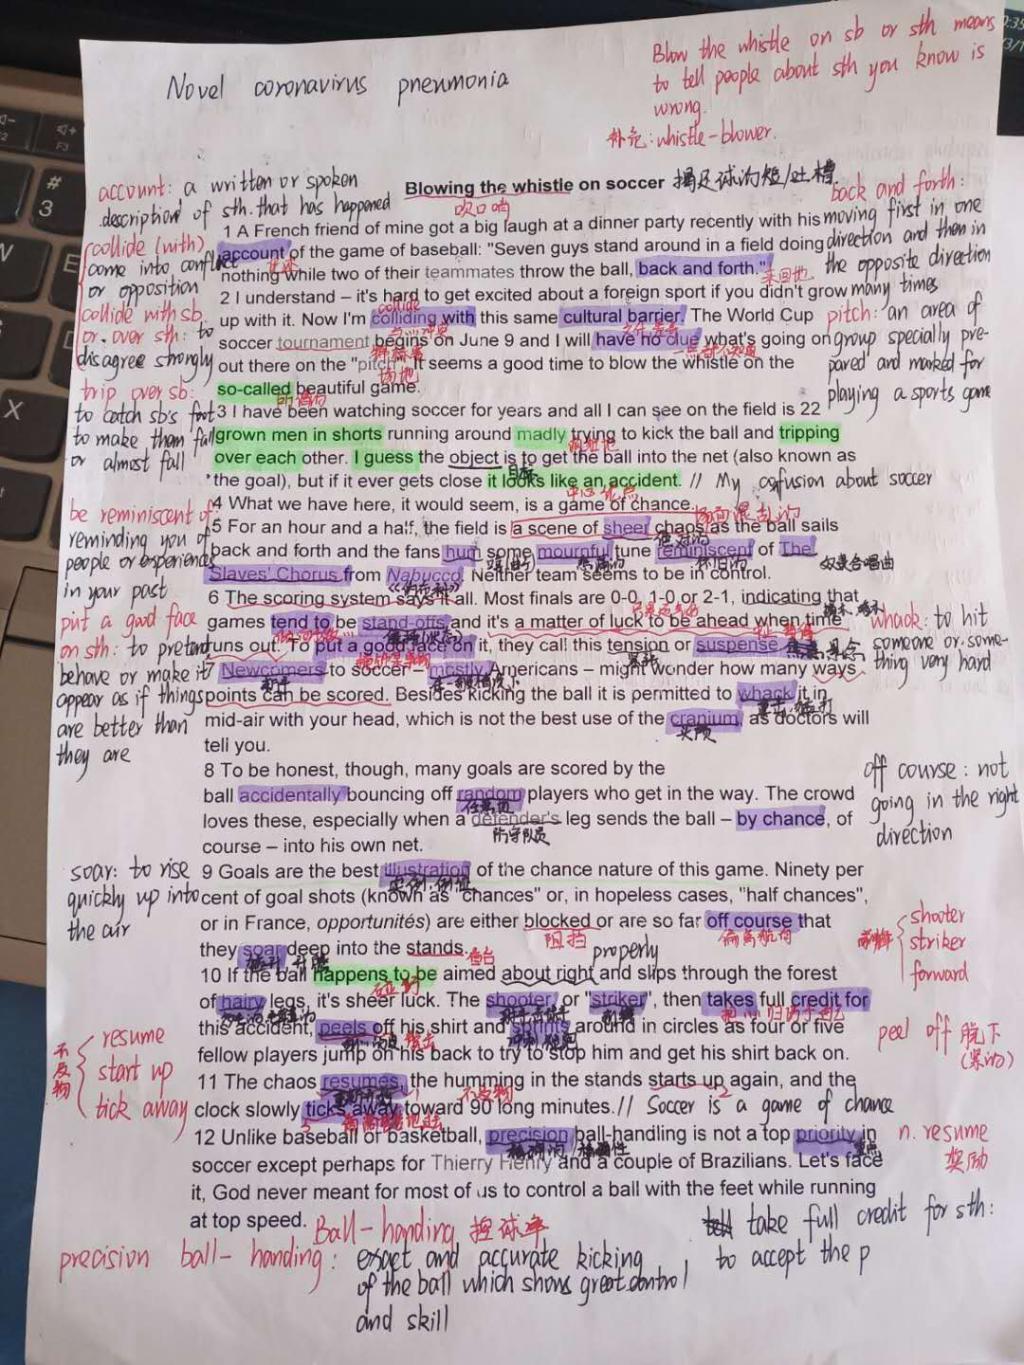 Novel coronavirus pneumonia
Blow the whistle on sb or sth means
to tell people about sth you know is
wrong.
补充:whistle-blower.
account: a written or spoken
description of sth. that has happened
collide (with)
come into conflict
or opposition
collide with sb
or. over sth: to
disagree strongly
trip over sb:
to catch sb's foot
to make them fall
or almost fall
be reminiscent of
reminding you of
people or experiences
in your past
put a good face
on sth: to pretend
behave or make it
appear as if things
are better than
they are
soar: to rise
quickly up into
the air
不及物
resume
start up
tick away
Blowing the whistle on soccer 揭足球的短/吐槽
吹口哨
1 A French friend of mine got a big laugh at a dinner party recently with his
account of the game of baseball: "Seven guys stand around in a field doing
nothing while two of their teammates throw the ball, back and forth."
来回地
2 I understand – it's hard to get excited about a foreign sport if you didn't grow
up with it. Now I'm colliding with this same cultural barrier. The World Cup
collide
soccer tournament begins on June 9 and I will have no clue what's going on
锦标赛
out there on the "pitch". It seems a good time to blow the whistle on the
场地
so-called beautiful game.
所谓的
3 I have been watching soccer for years and all I can see on the field is 22
grown men in shorts running around madly trying to kick the ball and tripping
over each other. I guess the object is to get the ball into the net (also known as
目标
the goal), but if it ever gets close it looks like an accident. // My confusion about soccer
4 What we have here, it would seem, is a game of chance.
5 For an hour and a half, the field is a scene of sheer chaos as the ball sails
back and forth and the fans hum some mournful tune reminiscent of The
Slaves' Chorus from Nabucco. Neither team seems to be in control.
奴隶合唱曲
6 The scoring system says it all. Most finals are 0-0, 1-0 or 2-1, indicating that
games tend to be stand-offs and it's a matter of luck to be ahead when time
runs out. To put a good face on it, they call this tension or suspense.
7 Newcomers to soccer – mostly Americans – might wonder how many ways
points can be scored. Besides kicking the ball it is permitted to whack it in
mid-air with your head, which is not the best use of the cranium, as doctors will
头颅
tell you.
8 To be honest, though, many goals are scored by the
ball accidentally bouncing off random players who get in the way. The crowd
loves these, especially when a defender's leg sends the ball – by chance, of
防守队员
course – into his own net.
9 Goals are the best illustration of the chance nature of this game. Ninety per
cent of goal shots (known as "chances" or, in hopeless cases, "half chances",
or in France, opportunités) are either blocked or are so far off course that
阻挡
偏离航向
they soar deep into the stands.
看台
properly
10 If the ball happens to be aimed about right and slips through the forest
of hairy legs, it's sheer luck. The shooter, or "striker", then takes full credit for
this accident, peels off his shirt and sprints around in circles as four or five
fellow players jump on his back to try to stop him and get his shirt back on.
11 The chaos resumes, the humming in the stands starts up again, and the
不及物
clock slowly ticks away toward 90 long minutes. // Soccer is a game of chance
12 Unlike baseball or basketball, precision ball-handling is not a top priority in
soccer except perhaps for Thierry Henry and a couple of Brazilians. Let's face
it, God never meant for most of us to control a ball with the feet while running
at top speed.
Ball-handing 控球率
precision ball-handing: exact and accurate kicking
of the ball which shows great control
and skill
back and forth:
moving first in one
direction and then in
the opposite direction
many times
pitch: an area of
group specially pre-
pared and marked for
playing a sports game
whack: to hit
someone or some-
thing very hard
off course: not
going in the right
direction
前锋
shooter
striker
forward
peel off 脱下
n. resume
奖励
take full credit for sth:
to accept the p